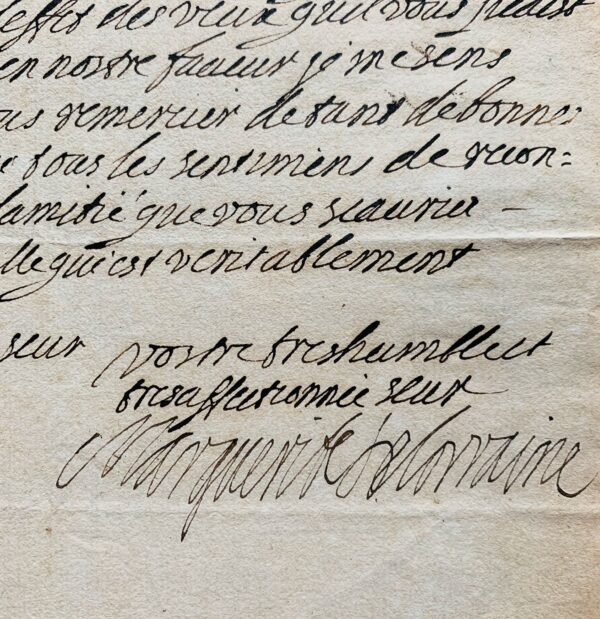 effet des veux quil vous plaist
en nostre faueur je me sens
us remercier de tant de bonnes
tous les sentimens de recon=
lamitié que vous scauriez -
lle qui est veritablement
seur vostre treshumble et
tresaffectionnée seur
Marguerite de lorraine